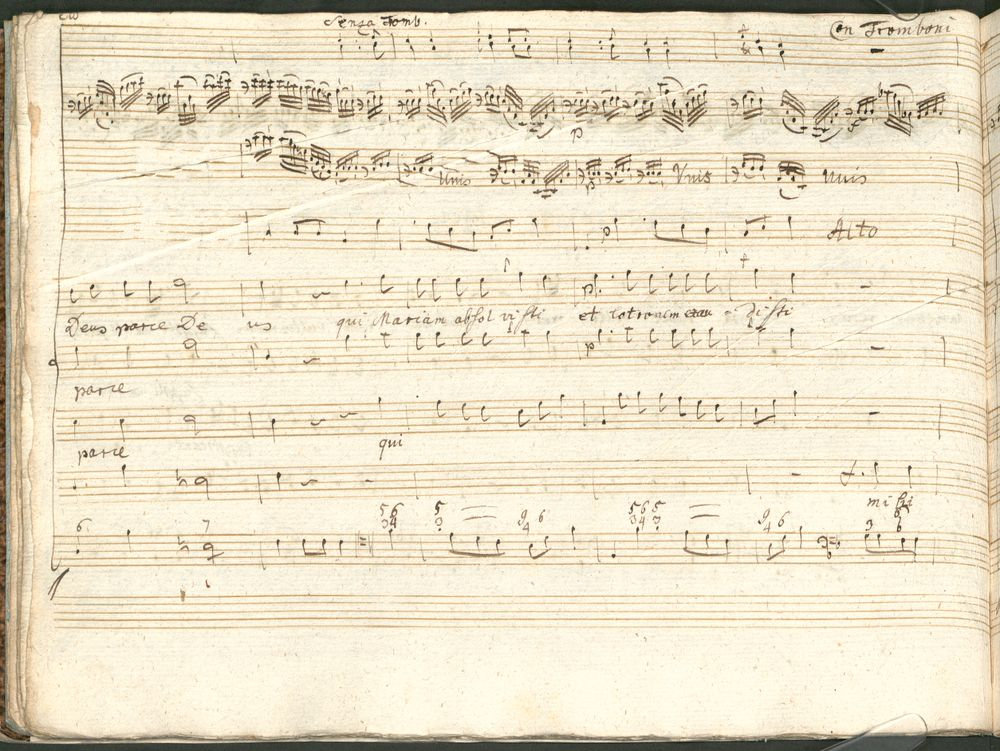 Senza Tromb. Con Tromboni
p
Unis p Unis Unis
p Alto
p.
Deus parce De us qui Mariam absol visti et latronem exau disti
p
parce
parce qui
mihi
6 7 5 6 5 9 6 5 6 5 9 6
3 4 3 4 3 4 3 4 3 6